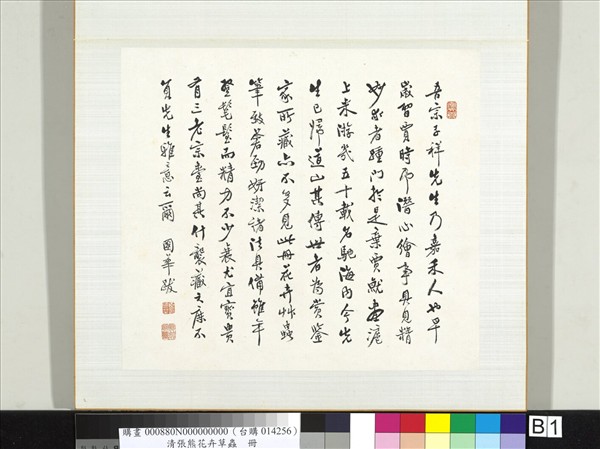 吾宗子祥先生乃嘉禾人也早
歲習賈時即潛心繪事具見精
妙求者踵門於是棄賈鬻畫滬
上來游幾五十載名馳海內今先
生已歸道山其傳世者為賞鑒
家所藏亦不多見此冊花卉草蟲
筆致蒼勁妍潔諸法具備雖年
登耄耋而精力不少衰尤宜寶貴
有三老宗臺尚其什襲藏之庶不
負先生雅意云爾 國華跋
購畫 000880N000000000 (台購 014256)
清張熊花卉草蟲 冊
B 1